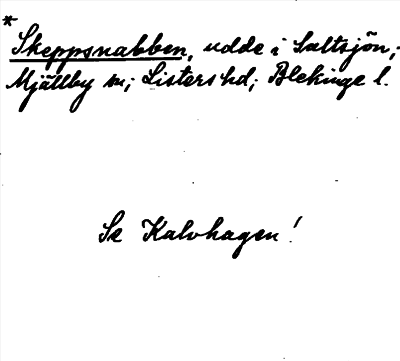 *
Skeppsnabben, udde i Saltsjön;
Mjällby sn; Listers hd; Blekinge l.
Se Kalvhagen!